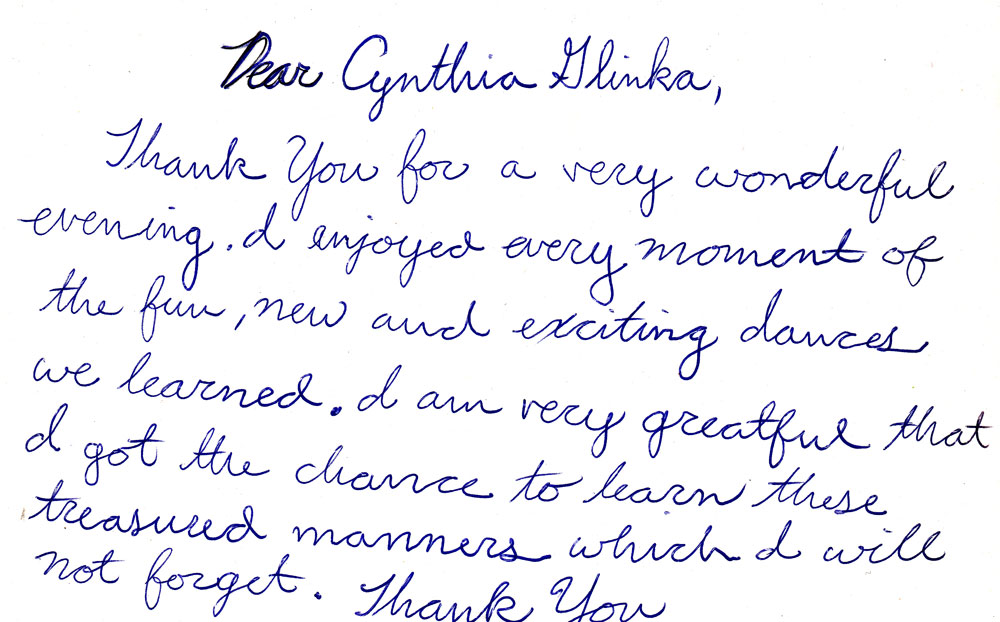 Dear Cynthia Glinka,
Thank You for a very wonderful
evening. I enjoyed every moment of
the fun, new and exciting dances
we learned. I am very greatful that
I got the chance to learn these
treasured manners which I will
not forget. Thank You